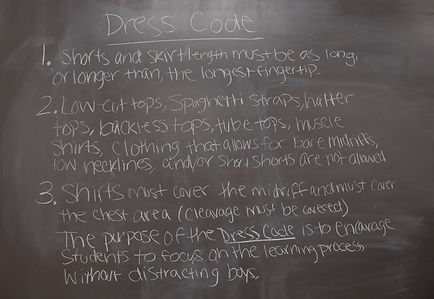 Dress Code
1. Shorts and skirt length must be as long,
or longer than, the longest fingertip.
2. Low-cut tops, Spaghetti straps, halter
tops, backless tops, tube tops, muscle
shirts, clothing that allows for bare midriffs,
low necklines, and/or short shorts are not allowed
3. Shirts must cover the midriff and must cover
the chest area (cleavage must be covered)
The purpose of the Dress Code is to encourage
Students to focus on the learning process
without distracting boys.